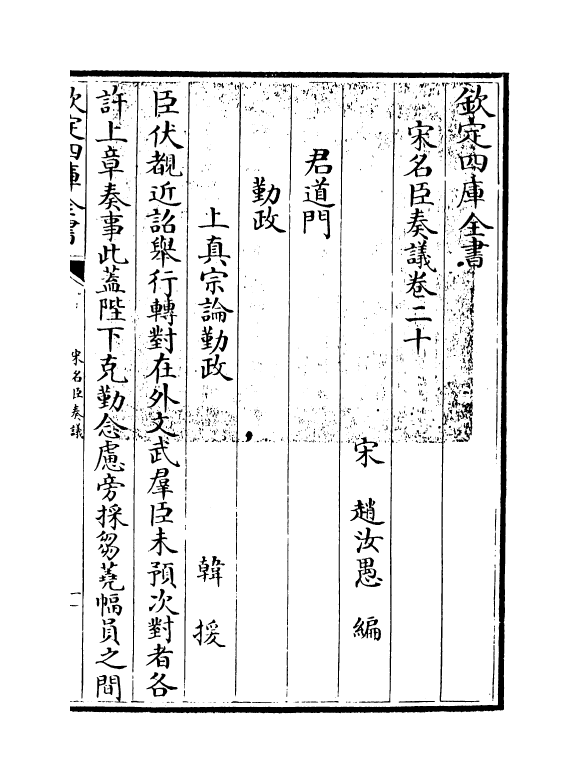 欽定四庫全書
宋名臣奏議卷二十
宋　趙汝愚　編
君道門
勤政
上真宗論勤政　　韓援
臣伏覩近詔舉行轉對在外文武羣臣未預次對者各
許上章奏事此蓋陛下克勤念慮旁採芻蕘幅員之間
欽定四庫全書
宋名臣奏議
一